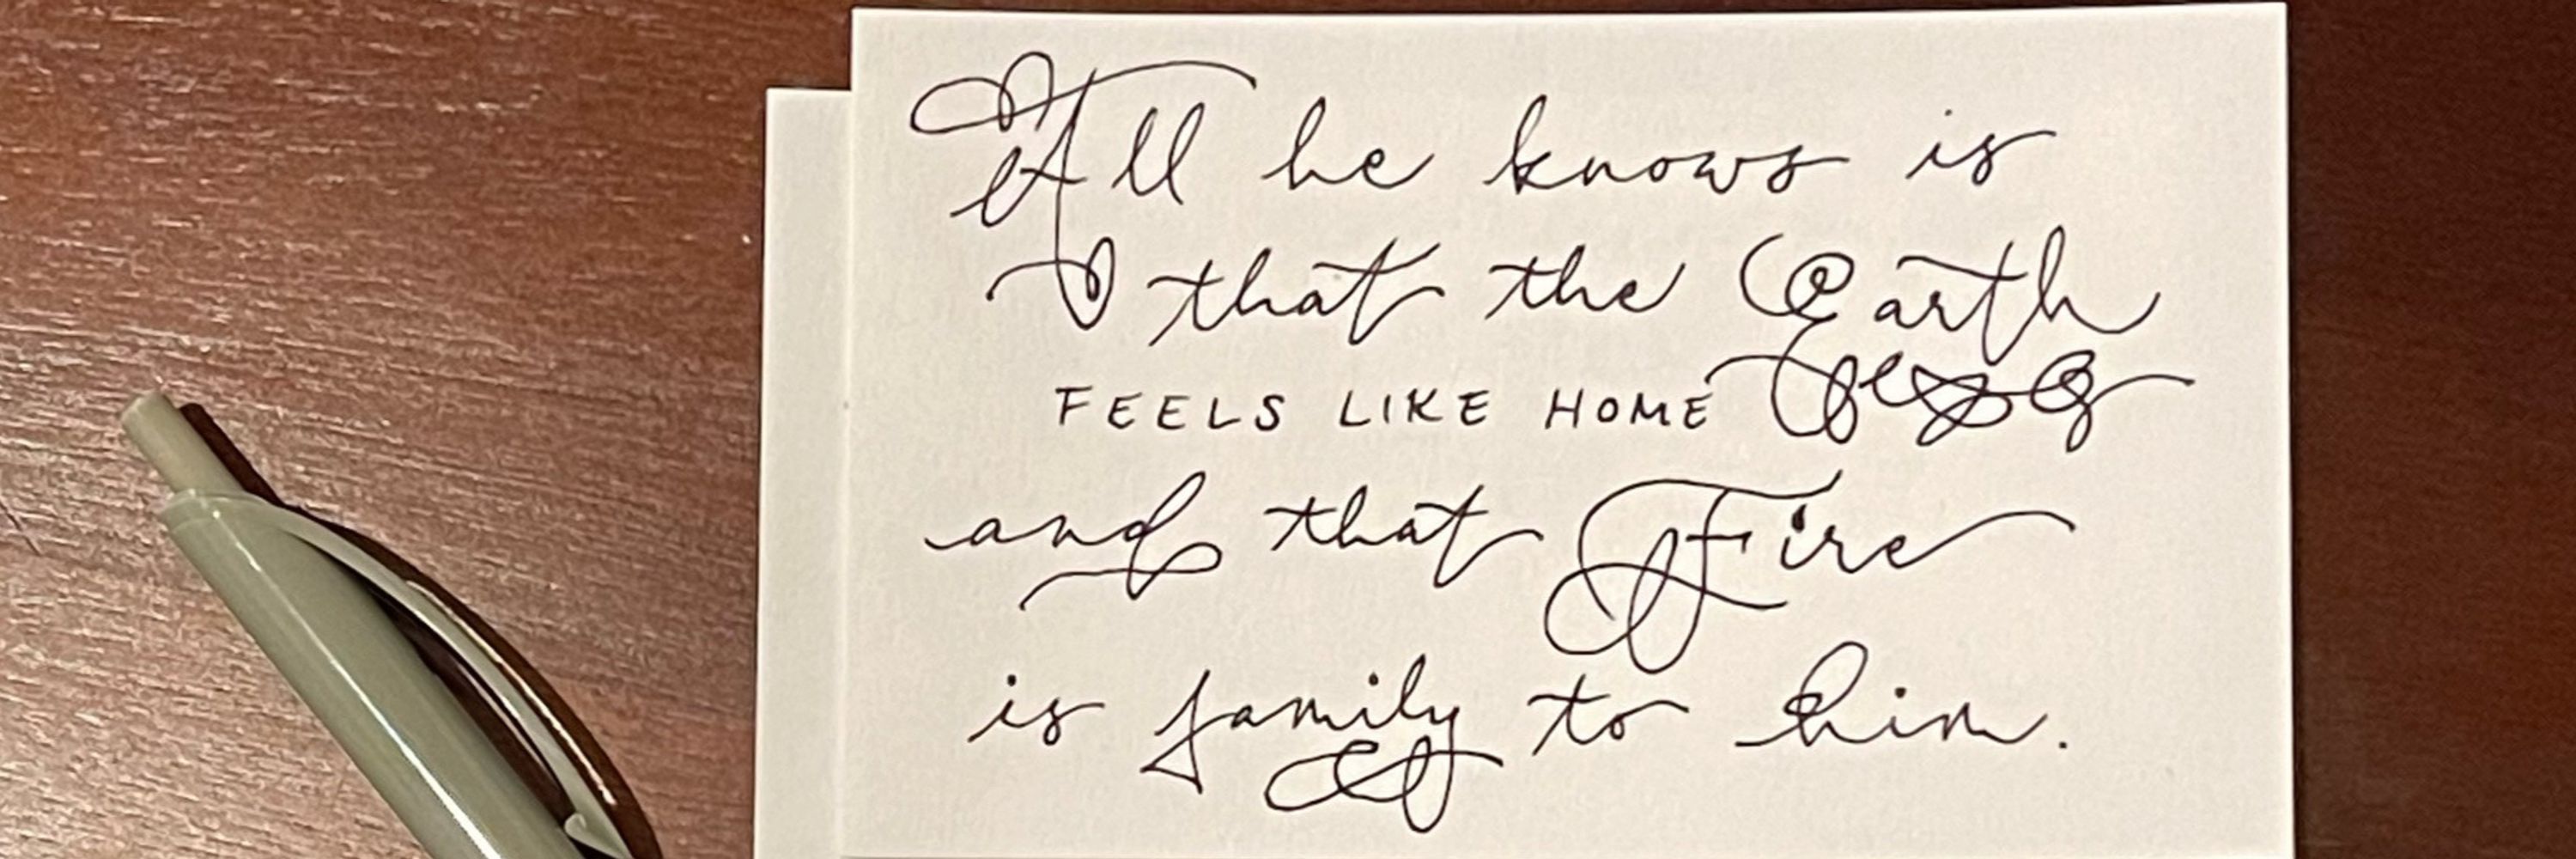 All he knows is
that the Earth
FEELS LIKE HOME
and that Fire
is family to him.